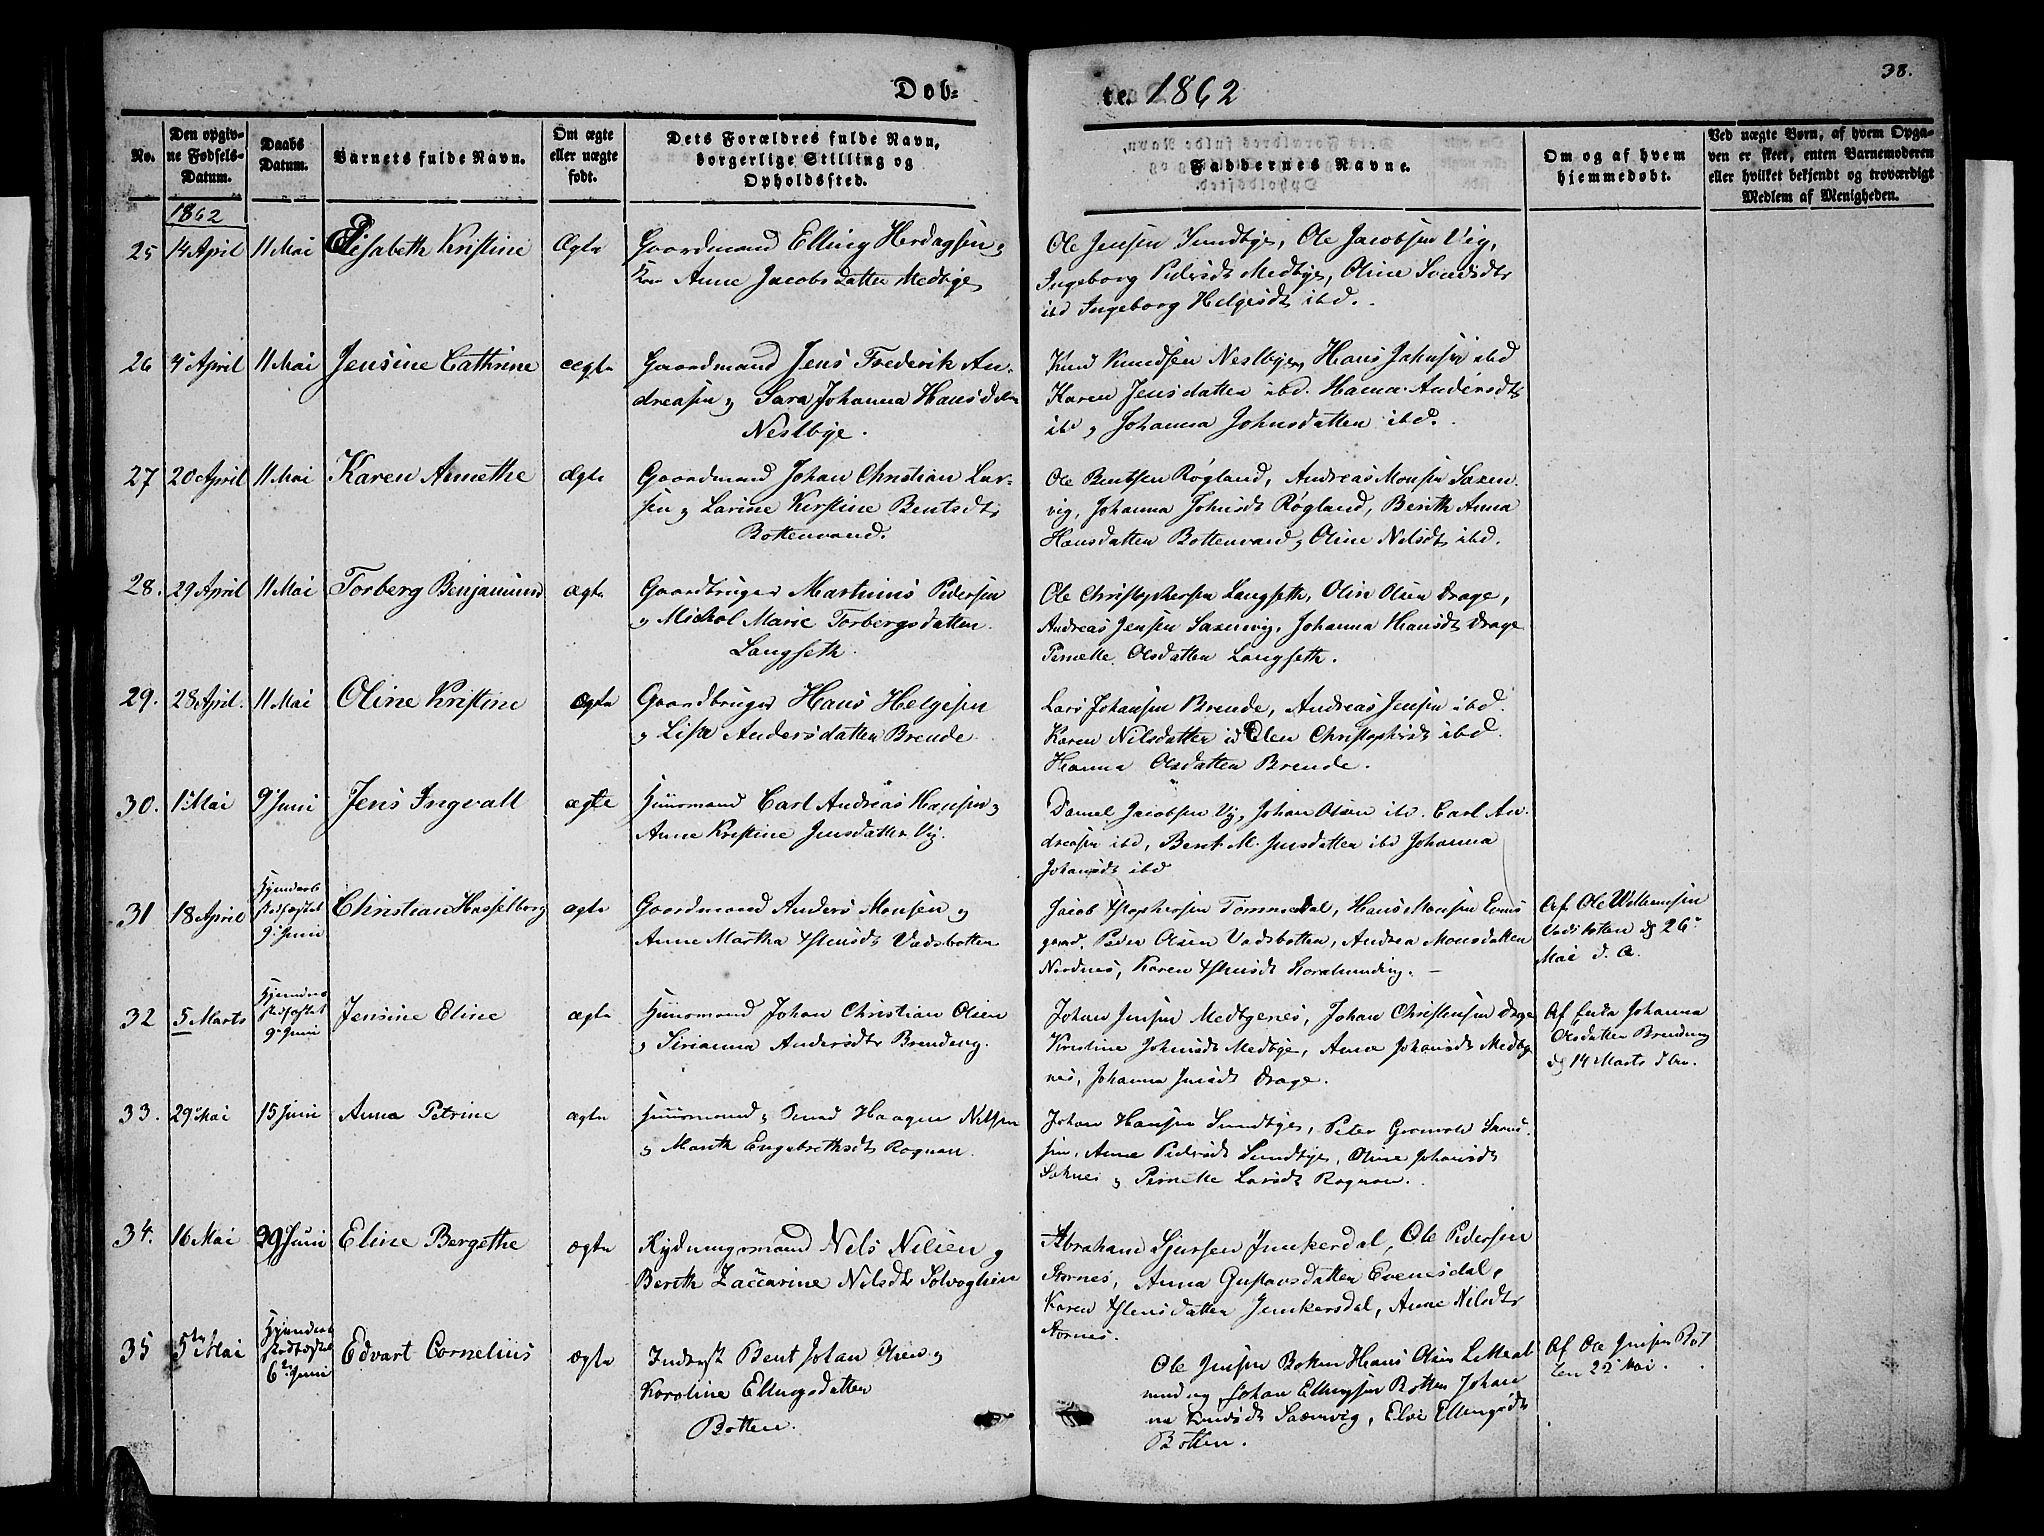 Døb-
te. 1862
38.
No.
Den opgiv-
ne Fødsels-
Datum.
Daabs
Datum.
Barnets fulde Navn.
Om ægte
eller uægte
født.
Dets Forældres fulde Navn,
borgerlige Stilling og
Opholdssted.
Faddernes Navne.
Om og af hvem
hjemmedøbt.
Ved uægte Børn, af hvem Opga-
ven er skeet, enten Barnemoderen
eller hvilket bekjendt og troværdigt
Medlem af Menigheden.
1862
25 14 April 11 Mai Elisabeth Kristine Ægte
Gaardmand Elling Herdagsen og
Kone Anne Jacobsdatter Medbye
Ole Jensen Sundbye, Ole Jacobsen Vig,
Ingeborg Pedersdt Medbye, Oline
ibd Ingeborg Helgesdt ibd.
26 4 April 11 Mai Jensine Cathrine ægte
Gaardmand Jens Frederik An-
dreasen og Sara Johanna Hansd
Neslbye.
Knud Knudsen Neslbye, Hans Johnsen ibd
Karen Jensdatter ibd. Hanna Andersdt
ibd og Johanna Johnsdatter ibd.
27 20 April 11 Mai Karen Annethe Ægte
Gaardmand Johan Christian Lar-
sen og Larine Kirstine Bentsdt
Bottenvand.
Ole Bentsen Røgland, Andreas Monsen Saxen
vig, Johanna Johnsdt Røgland, Berith Anna
Hansdatter Bottenvand, Oline Nilsdt ibd.
28. 29 April 11 Mai Torberg Benjamin ægte
Gaardbruger Martinus Pedersen
og Michol Marie Torbergsdatter
Langseth.
Ole Christophersen Langseth, Olin Olsen Drage,
Andreas Jensen Saxenvig, Johanna Hansdt Drage
Pernelle Olsdatter Langseth.
29. 28 April. 11 Mai Oline Kristine Ægte
Gaardbruger Hans Helgesen
og Lisa Andersdatter Brende
Lars Johansen Brende, Andreas Jensen ibd.
Karen Nilsdatter Elen Christophersdt ibd.
Hanna Olsdatter Brende.
30. 1 Mai 9 Juni Jens Ingvall ægte
Huusmand Carl Andreas Hansen og
Anne Kristine Jensdatter Vig.
Daniel Jacobsen Vig, Johan Olsen ibd. Carl An-
dreasen ibd, Berit M. Jensdatter ibd Johanna
Johansdt ibd
31 18 April
stadfæstet
9 Juni
Christian Hasselberg ægte
Gaardmand Anders Monsen og
Anne Martha Vadsbotten
Jacob Tømmerdal, Hans Monsen Evens
gaard, Peder Olsen Vadsbotten, Andrea Monsdatter
Nordnes, Karen
Af Ole Willumsen
Vadsbotten d. 26
Mai d. A.
32 5 Marts
stadfæstet
9 Juni
Jensine Eline ægte
Huusmand Johan Christian Olsen
og Sirianna Andersdtr Brendeng.
Johan Jensen Medbyenes, Johan Christensen Drage
Kristine Johnsdt Medbye, Anne Johansdt Medby
nes, Johanna Jensdt Drage.
Af Enke Johanna
Olsdatter Brendeng
d. 14 Marts d. An.
33. 29 Mai 15 Juni Anna Petrine ægte
Huusmand Haagen Nilsen
og Marith Engebrethsdt Rognan.
Johan Hansen Sundbye, Peter Grønvold
sen, Anne Pedersdt Sundbye, Oline Johansdt
Saknes og Pernelle Larsdt Rognan.
34. 16 Mai 29 Juni Eline Bergethe ægte
Rydningsmand Nils Nilsen og
Berith Zaccarine Nilsdt Solvaglien
Abraham Sjursen Junkerdal, Ole Pedersen
Stornes, Anna Gustavsdatter Evenesdal,
Karen datter Junkersdal, Anne Nilsdtr
Stornes.
35 5te Mai
6 Juni
Edvart Cornelius ægte
Inderst Bent Johan Olsen og
Karoline Ellingsdatter
Botten.
Ole Jensen Botten Hans Olsen
Johan Ellingsen Botten Johan
na Saxenvig, Ellingsdt
Botten.
Af Ole Jensen Bot
ten 25 Mai.